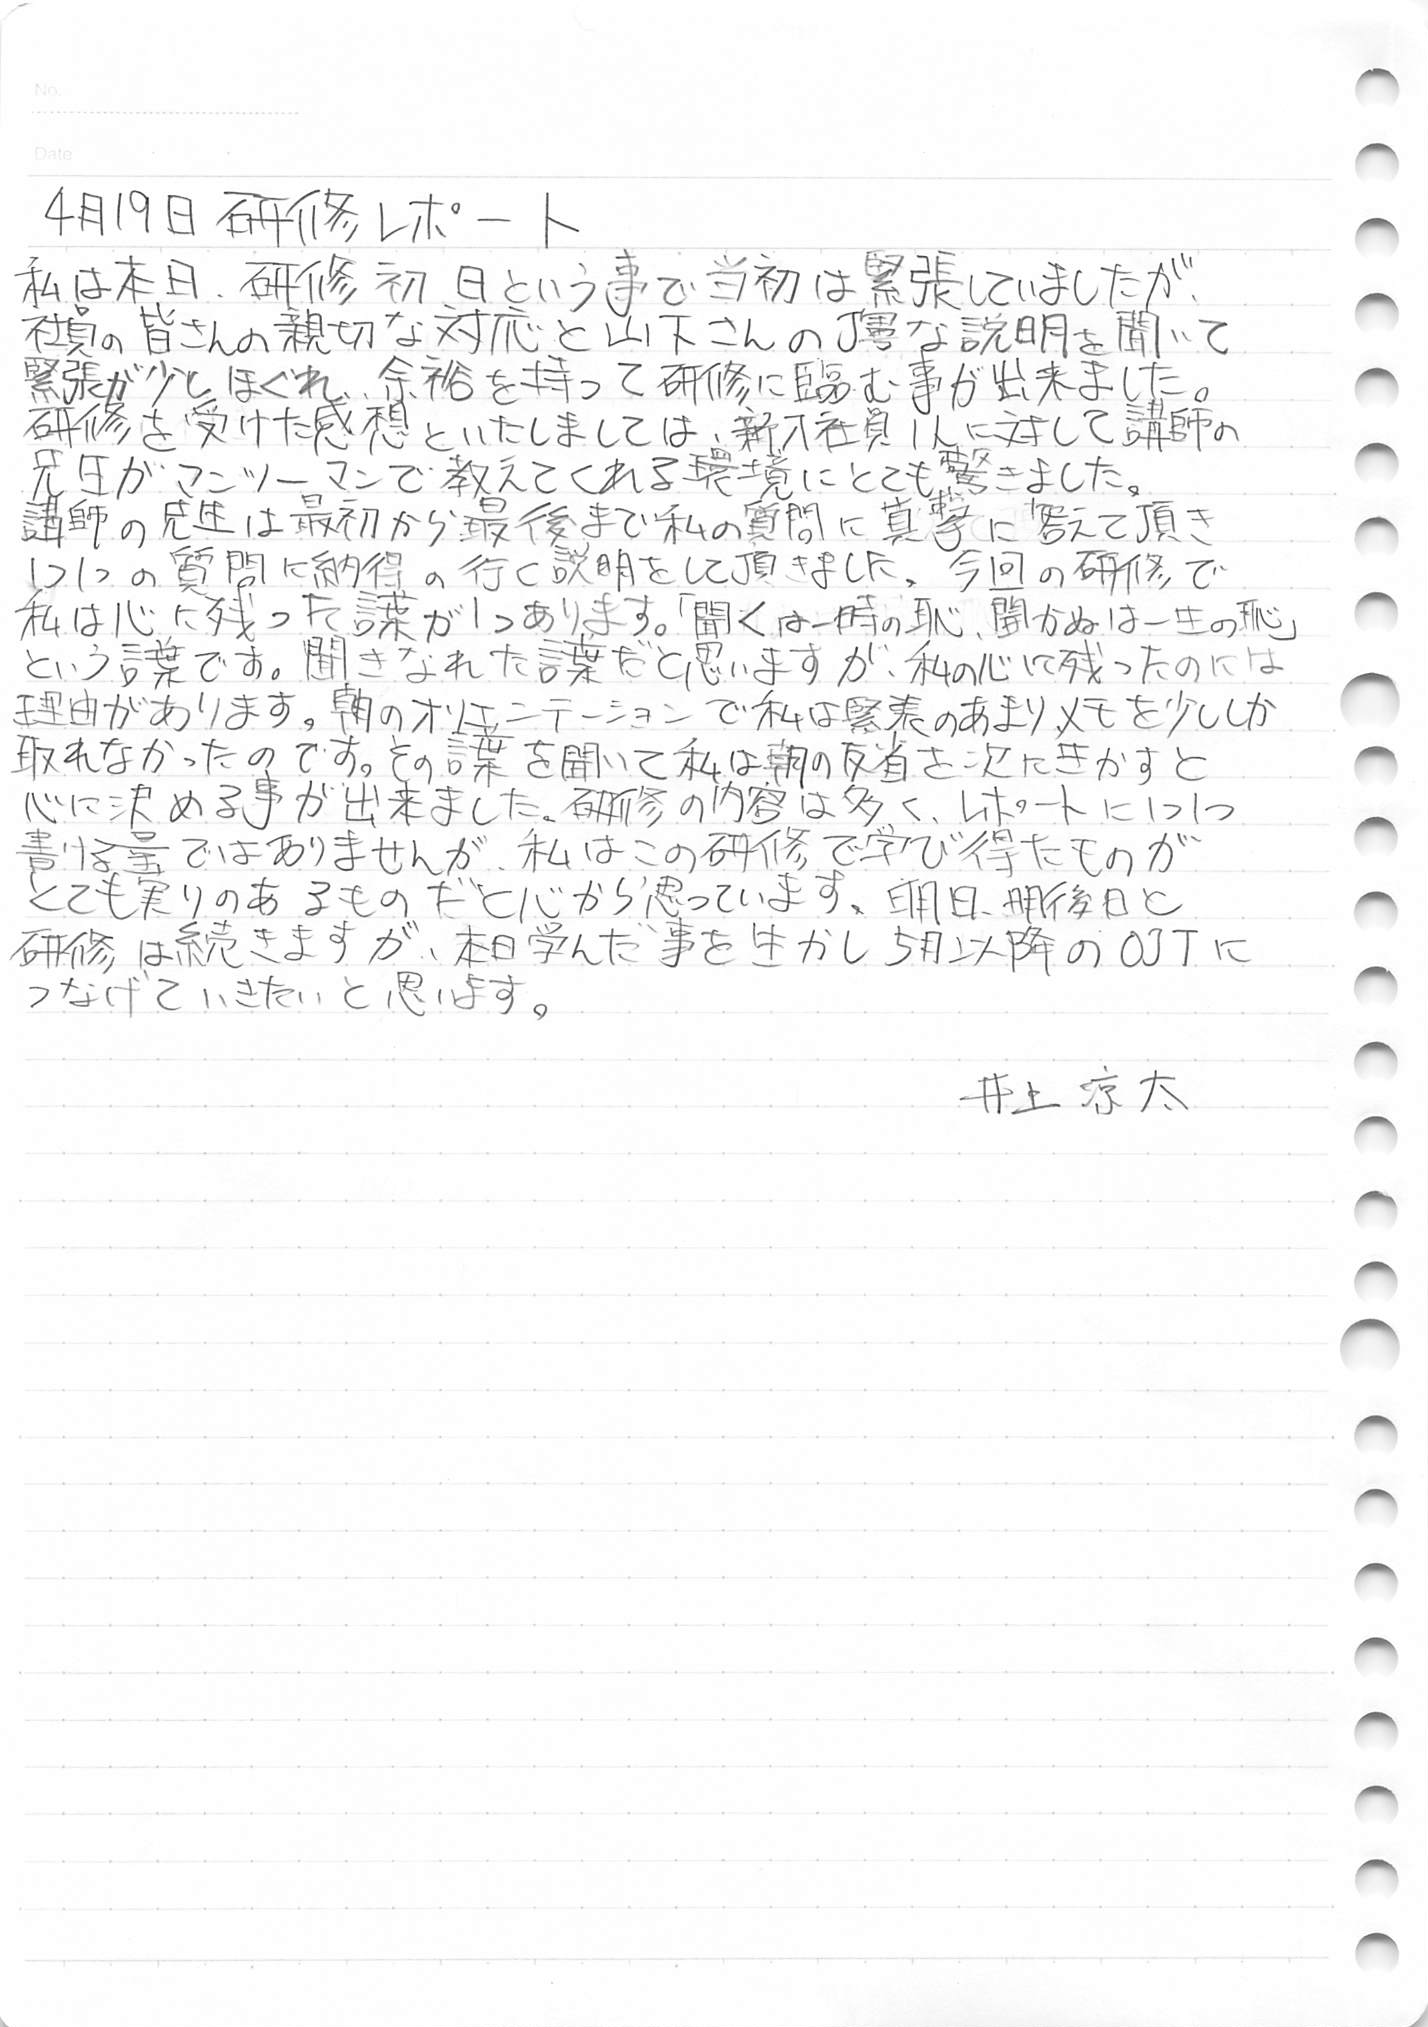 No.
Date
4月19日 研修レポート
私は本日、研修初日という事で当初は緊張していましたが、
社員の皆さんの親切な対応と山下さんの丁寧な説明を聞いて
緊張が少しほぐれ、余裕を持って研修に臨む事が出来ました。
研修を受けた感想といたしましては、新入社員1人に対して講師の
先生がマンツーマンで教えてくれる環境にとても驚きました。
講師の先生は最初から最後まで私の質問に真摯に答えて頂き
1つ1つの質問に納得の行く説明をして頂きました。今回の研修で
私は心に残った言葉が1つあります。「聞くは一時の恥、聞かぬは一生の恥」
という言葉です。聞きなれた言葉だと思いますが、私の心に残ったのには
理由があります。朝のオリエンテーションで私は緊張のあまりメモを少ししか
取れなかったのです。その言葉を聞いて私は朝の反省を次に生かすと
心に決める事が出来ました。研修の内容は多く、レポートに1つ1つ
書ける量ではありませんが、私はこの研修で学び得たものが
とても実りのあるものだと心から思っています。明日、明後日と
研修は続きますが、本日学んだ事を生かし5月以降のOJTに
つなげていきたいと思います。
井上涼太